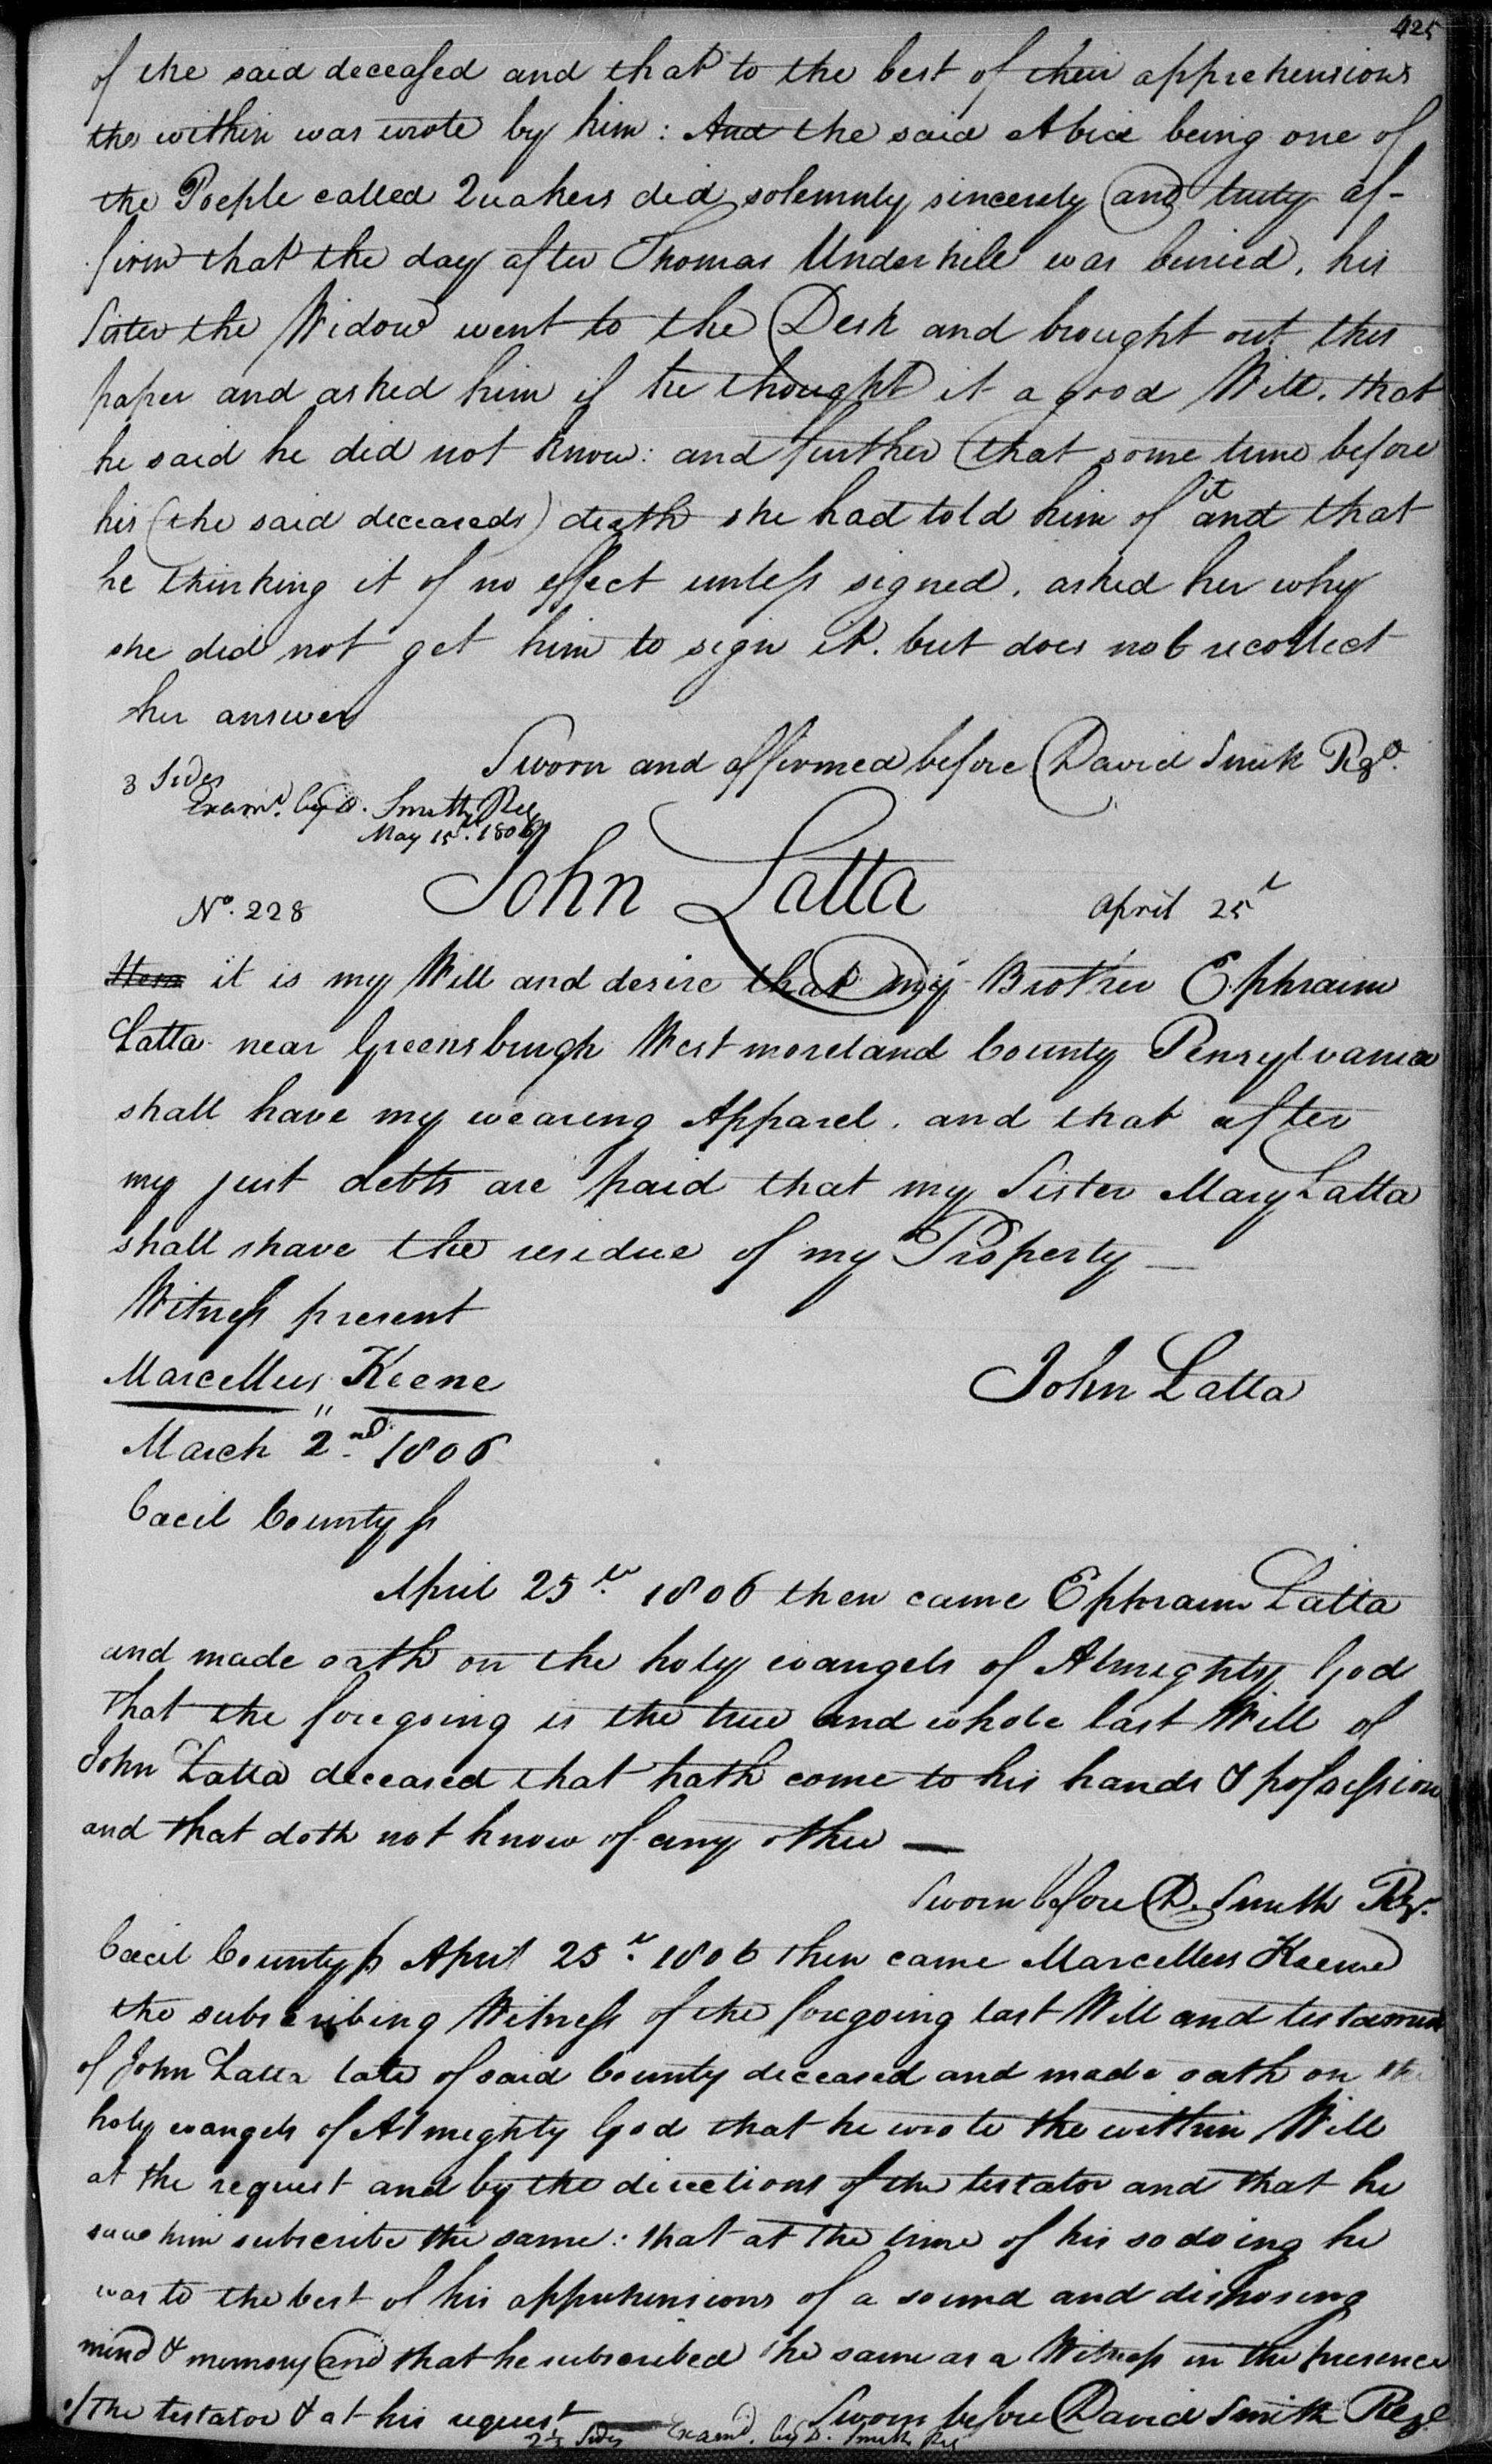 425
of the said deceased and that to the best of their apprehensions
the within was wrote by him: And the said Abia being one of
the Poeple called Quakers did solemnly sincerely and truly af-
firm that the day after Thomas Underhill was buried, his
Sister the Widow went to the Desk and brought out this
paper and asked him if he thought it a good Will. that
he said he did not know: and further that some time before
his (the said deceaseds) death she had told him of it and that
he thinking it of no effect unless signed. asked her why
she did not get him to sign it. but does not recollect
her answer
Sworn and affirmed before David Smith Regr.
3 Sides
Examd. by D. Smith Reg
May 15th. 1806
No. 228 John Latta April 25th
Item it is my Will and desire that my Brother Ephraim
Latta near Greensburgh Westmoreland County Pensylvania
shall have my wearing Apparel. and that after
my just debts are paid that my Sister Mary Latta
shall shave the residue of my Property —
Witness present
Marcellus Keene John Latta
March 2nd. 1806
Cecil County ss
April 25th 1806 then came Ephraim Latta
and made oath on the holy evangels of Almighty God
that the foregoing is the true and whole last Will of
John Latta deceased that hath come to his hands & possession
and that doth not know of any other —
Sworn before D. Smith Regr.
Cecil County ss April 25th 1806 then came Marcellus Keene
the subscribing Witness of the foregoing last Will and testament
of John Latta late of said County deceased and made oath on the
holy evangels of Almighty God that he wrote the within Will
at the request and by the directions of the testator and that he
saw him subscribe the same: that at the time of his so doing he
was to the best of his apprehensions of a sound and disposing
mind & memory and that he subscribed the same as a Witness in the presence
of the testator & at his request — Sworn before David Smith Regr
2½ Sides Examd. by D. Smith Reg